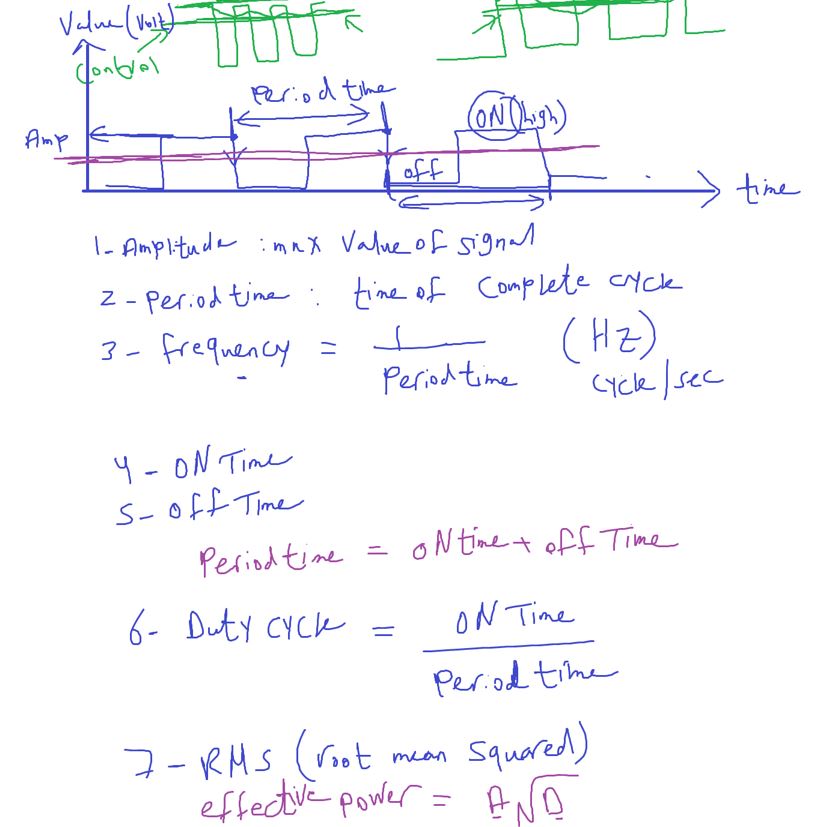 Value(Volt)
Control
Period time
ON (high)
Amp
off
time
1- Amplitude : max Value of signal
2 - Period time : time of Complete cycle
3 - frequency = 1 / Period time (HZ)
cycle/sec
4 - ON Time
5- off Time
Period time = ON time + off Time
6- Duty cycle = ON Time / Period time
7 - RMS (root mean squared)
effective power = A√D